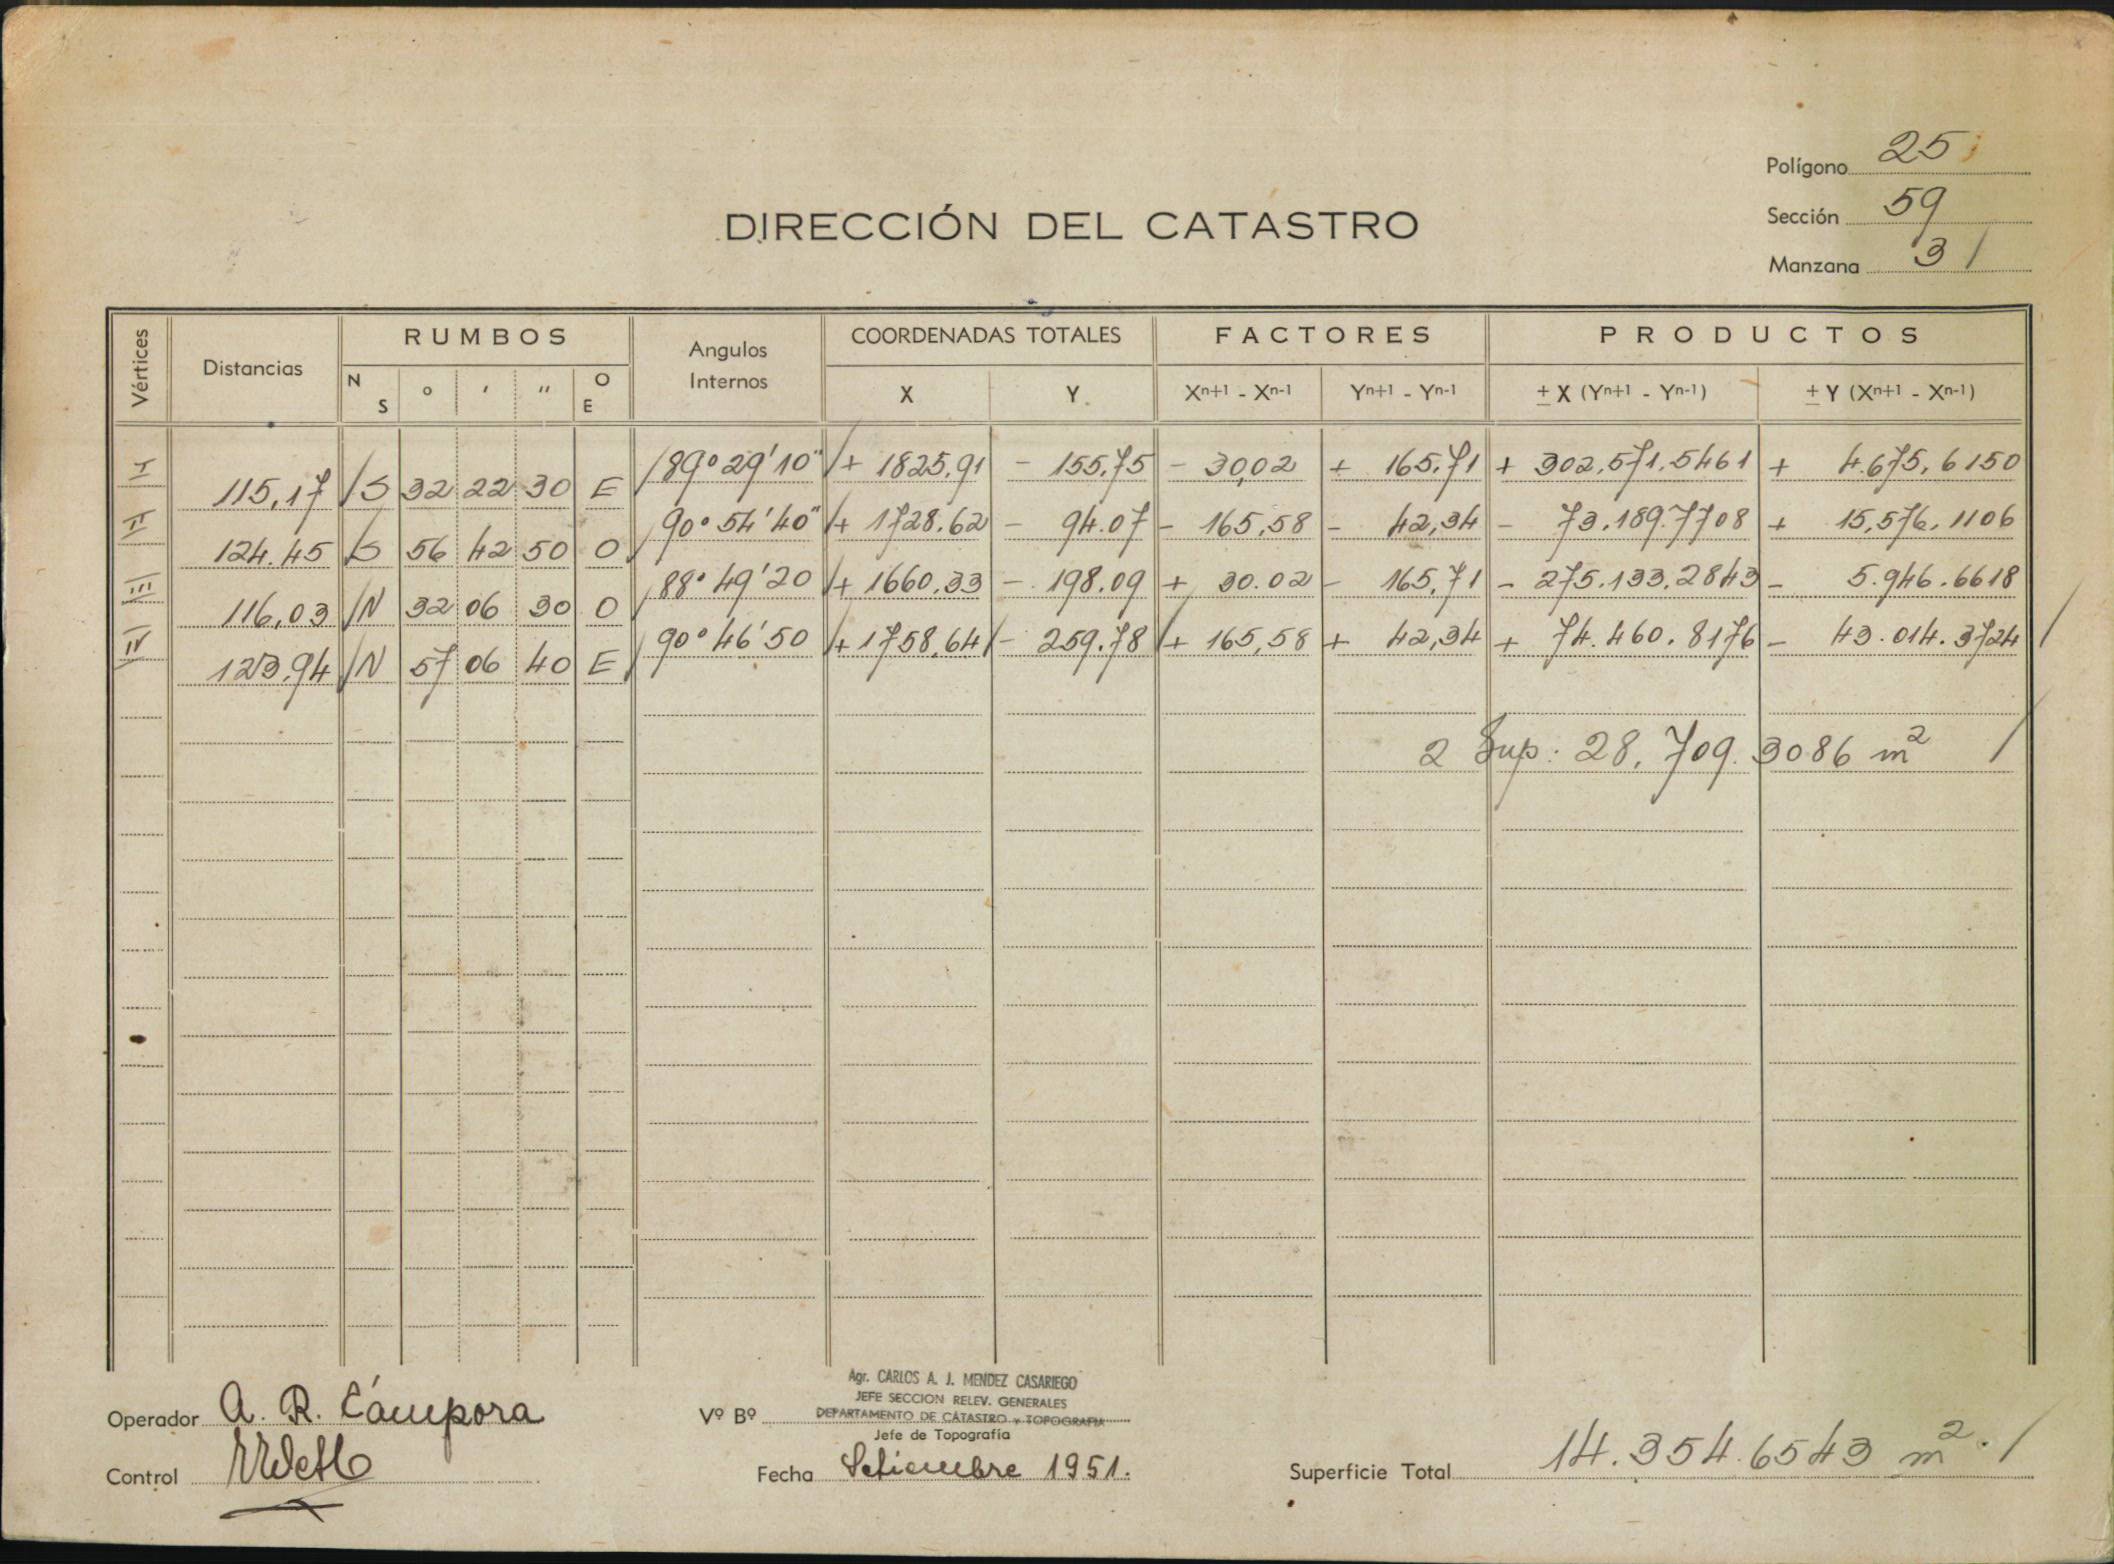 Polígono 25
DIRECCIÓN DEL CATASTRO
Sección 59
Manzana 31
Vértices Distancias RUMBOS Angulos Internos COORDENADAS TOTALES FACTORES PRODUCTOS
N S ° ' " O E X Y Xn+1 - Xn-1 Yn+1 - Yn-1 ± X (Yn+1 - Yn-1) ± Y (Xn+1 - Xn-1)
I 115,17 S 32 22 30 E 89° 29' 10" + 1825,91 - 155,75 - 30,02 + 165,71 + 302.571.5461 + 4.675,6150
II 124.45 S 56 42 50 O 90° 54' 40" + 1728.62 - 94.07 - 165,58 - 42,34 - 73.189.7708 + 15,576.1106
III 116,03 N 32 06 30 O 88° 49' 20 + 1660.33 - 198.09 + 30.02 - 165,71 - 275.133.2843 - 5.946.6618
IV 123,94 N 57 06 40 E 90° 46' 50 + 1758,64 - 259.78 + 165,58 + 42,34 + 74.460.8176 - 43.014.3724
2 Sup: 28.709.3086 m²
Agr. CARLOS A. J. MENDEZ CASARIEGO
JEFE SECCION RELEV. GENERALES
Operador A. R. Cámpora Vº Bº DEPARTAMENTO DE CATASTRO Y TOPOGRAFIA
Jefe de Topografía
Control Fecha Setiembre 1951. Superficie Total 14.354.6543 m².